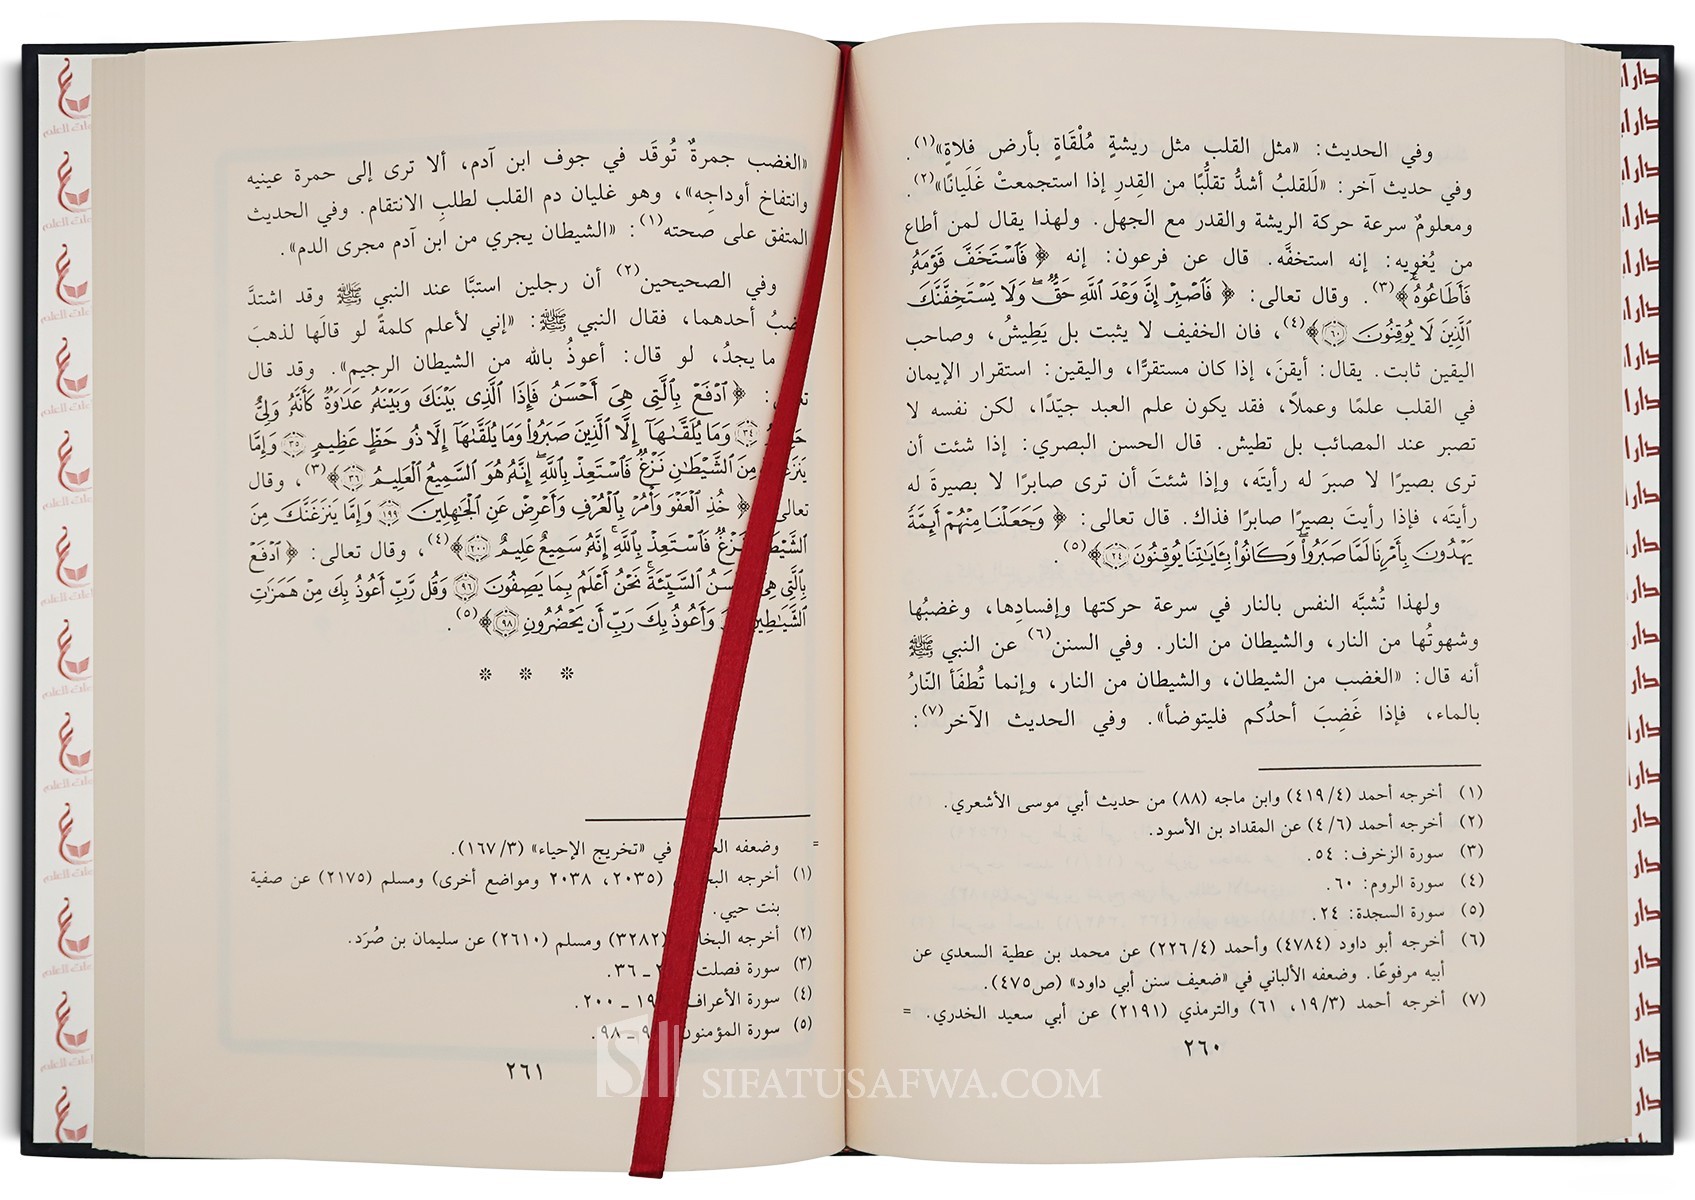 وفي الحديث: «مثل القلب مثل ريشةٍ مُلْقَاةٍ بأرض فلاةٍ»(١).
وفي حديث آخر: «لَلقلبُ أشدُّ تقلُّبًا من القِدرِ إذا استجمعتْ غَلَيانًا»(٢).
ومعلومٌ سرعة حركة الريشة والقدر مع الجهل. ولهذا يقال لمن أطاع
من يُغوِيه: إنه استخفَّه. قال عن فرعون: إنه ﴿فَٱسْتَخَفَّ قَوْمَهُۥ
فَأَطَاعُوهُ﴾(٣). وقال تعالى: ﴿فَٱصْبِرْ إِنَّ وَعْدَ ٱللَّهِ حَقٌّ ۖ وَلَا يَسْتَخِفَّنَّكَ
ٱلَّذِينَ لَا يُوقِنُونَ ٦٠﴾(٤)، فان الخفيف لا يثبت بل يَطِيشُ، وصاحب
اليقين ثابت. يقال: أيقنَ، إذا كان مستقرًّا، واليقين: استقرار الإيمان
في القلب علمًا وعملاً، فقد يكون علم العبد جيّدًا، لكن نفسه لا
تصبر عند المصائب بل تطيش. قال الحسن البصري: إذا شئت أن
ترى بصيرًا لا صبرَ له رأيتَه، وإذا شئتَ أن ترى صابرًا لا بصيرةَ له
رأيتَه، فإذا رأيتَ بصيرًا صابرًا فذاك. قال تعالى: ﴿وَجَعَلْنَا مِنْهُمْ أَئِمَّةً
يَهْدُونَ بِأَمْرِنَا لَمَّا صَبَرُوا۟ ۖ وَكَانُوا۟ بِـَٔايَـٰتِنَا يُوقِنُونَ ٢٤﴾(٥).
ولهذا تُشبَّه النفس بالنار في سرعة حركتها وإفسادِها، وغضبُها
وشهوتُها من النار، والشيطان من النار. وفي السنن(٦) عن النبي ﷺ
أنه قال: «الغضب من الشيطان، والشيطان من النار، وإنما تُطفَأ النَّارُ
بالماء، فإذا غَضِبَ أحدُكم فليتوضأ». وفي الحديث الآخر(٧):
(١) أخرجه أحمد (٤١٩/٤) وابن ماجه (٨٨) من حديث أبي موسى الأشعري.
(٢) أخرجه أحمد (٤/٦) عن المقداد بن الأسود.
(٣) سورة الزخرف: ٥٤.
(٤) سورة الروم: ٦٠.
(٥) سورة السجدة: ٢٤.
(٦) أخرجه أبو داود (٤٧٨٤) وأحمد (٢٢٦/٤) عن محمد بن عطية السعدي عن
أبيه مرفوعًا. وضعفه الألباني في «ضعيف سنن أبي داود» (ص٤٧٥).
(٧) أخرجه أحمد (١٩/٣، ٦١) والترمذي (٢١٩١) عن أبي سعيد الخدري. =
٢٦٠
«الغضب جمرةٌ تُوقَد في جوف ابن آدم، ألا ترى إلى حمرة عينيه
وانتفاخ أوداجِه»، وهو غليان دم القلب لطلبِ الانتقام. وفي الحديث
المتفق على صحته(١): «الشيطان يجري من ابن آدم مجرى الدم».
وفي الصحيحين(٢) أن رجلين استبَّا عند النبي ﷺ وقد اشتدَّ
أحدهما، فقال النبي ﷺ: «إني لأعلم كلمةً لو قالَها لذهبَ
ما يجدُ، لو قال: أعوذُ بالله من الشيطان الرجيم». وقد قال
﴿ٱدْفَعْ بِٱلَّتِى هِىَ أَحْسَنُ فَإِذَا ٱلَّذِى بَيْنَكَ وَبَيْنَهُۥ عَدَٰوَةٌ كَأَنَّهُۥ وَلِىٌّ
٣٤ وَمَا يُلَقَّىٰهَآ إِلَّا ٱلَّذِينَ صَبَرُوا۟ وَمَا يُلَقَّىٰهَآ إِلَّا ذُو حَظٍّ عَظِيمٍ ٣٥ وَإِمَّا
مِنَ ٱلشَّيْطَـٰنِ نَزْغٌ فَٱسْتَعِذْ بِٱللَّهِ ۖ إِنَّهُۥ هُوَ ٱلسَّمِيعُ ٱلْعَلِيمُ ٣٦﴾(٣)، وقال
تعالى ﴿خُذِ ٱلْعَفْوَ وَأْمُرْ بِٱلْعُرْفِ وَأَعْرِضْ عَنِ ٱلْجَـٰهِلِينَ ١٩٩ وَإِمَّا يَنزَغَنَّكَ مِنَ
نَزْغٌ فَٱسْتَعِذْ بِٱللَّهِ ۚ إِنَّهُۥ سَمِيعٌ عَلِيمٌ ٢٠٠﴾(٤)، وقال تعالى: ﴿ٱدْفَعْ
بِٱلَّتِى هِىَ ٱلسَّيِّئَةَ ۚ نَحْنُ أَعْلَمُ بِمَا يَصِفُونَ ٩٦ وَقُل رَّبِّ أَعُوذُ بِكَ مِنْ هَمَزَٰتِ
ٱلشَّيَـٰطِينِ وَأَعُوذُ بِكَ رَبِّ أَن يَحْضُرُونِ ٩٨﴾(٥).
* * *
= وضعفه في «تخريج الإحياء» (١٦٧/٣).
(١) أخرجه (٢٠٣٥، ٢٠٣٨ ومواضع أخرى) ومسلم (٢١٧٥) عن صفية
بنت حيي.
(٢) أخرجه (٣٢٨٢) ومسلم (٢٦١٠) عن سليمان بن صُرَد.
(٣) سورة فصلت ـ ٣٦.
(٤) سورة الأعراف ـ ٢٠٠.
(٥) سورة المؤمنون ـ ٩٨.
٢٦١
SIFATUSAFWA.COM